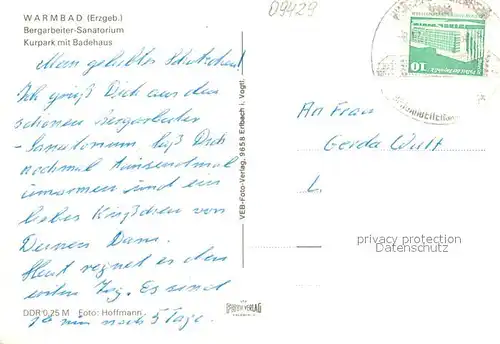 WARMBAD (Erzgeb.)
Bergarbeiter-Sanatorium
Kurpark mit Badehaus
09429
10
Mein geliebter Schatz
Ich grüß Dich aus dem
schönen Bergarbeiter
-Sanatorium laß Dich
nochmal tausendmal
umarmen und ein
liebes Küßchen von
Deinem
Heut regnet es den
ersten Tag. Es sind
nur noch 5 Tage.
An Frau
Gerda Wulf
L
VEB-Foto-Verlag, 9658 Erlbach i. Vogtl.
privacy protection
DDR 0,25 M Foto: Hoffmann